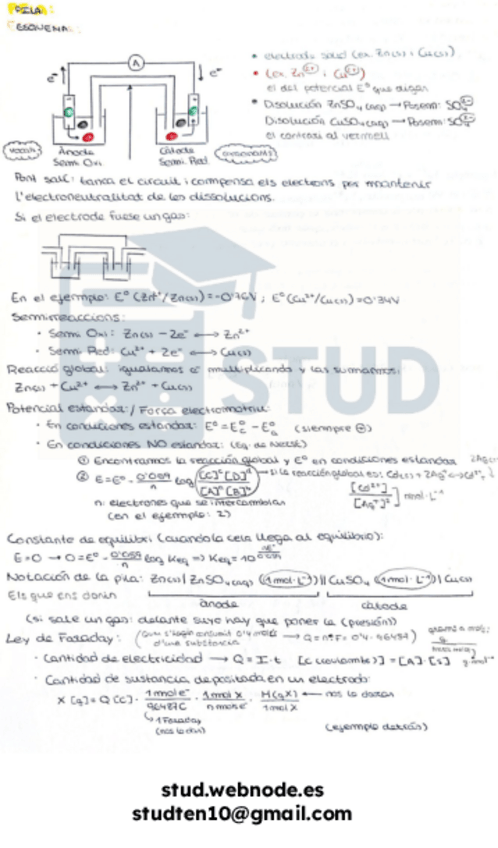 PILA
ESQUEMA:
• electrode sòlid (ex. Zn(s) i Cu(s))
• (ex Zn²⁺ i Cu²⁺)
el del potencial E° que digan
• Disolución ZnSO₄(aq) → Posem: SO₄²⁻
Disolución CuSO₄(aq) → Posem: SO₄²⁻
el contrari al vermell
A
e⁻
e⁻
Ànode
Semi Oxi
Càtode
Semi. Red.
(vocals)
(consonants)
Pont salí: tanca el circuit i compensa els electrons per mantenir
l'electroneutralitat de les dissolucions.
Si el electrode fuese un gas:
En el ejemplo: E° (Zn²⁺/Zn(s)) = -0'76V ; E° (Cu²⁺/Cu(s)) = 0'34V
Semirreaccions:
• Semi Oxi: Zn(s) - 2e⁻ ⟷ Zn²⁺
• Semi Red: Cu²⁺ + 2e⁻ ⟷ Cu(s)
Reacció global: igualamos e⁻ multiplicando y las sumamos:
Zn(s) + Cu²⁺ ⟷ Zn²⁺ + Cu(s)
Potencial estandar: / Força electromotriu:
• En condiciones estandar: E° = E°c - E°a (siempre ⊕)
• En condiciones NO estandar: (eq. de Nerst)
① Encontramos la reacción global y E° en condiciones estandar
② E = E° - 0'059/n log [C]ᶜ[D]ᵈ/[A]ᵃ[B]ᵇ → si la reacción global es: Cd(s) + 2Ag⁺ ⟷ Cd²⁺ +
[Cd²⁺]/[Ag⁺]² mol·L⁻¹
n: electrones que se intercambian
(en el ejemplo: 2)
Constante de equilibri (cuando la cela llega al equilibrio):
E=0 → 0=E° - 0'059/n log Keq ⇒ Keq = 10
Notación de la pila: Zn(s) | ZnSO₄(aq) (1 mol·L⁻¹) || CuSO₄ (1 mol·L⁻¹) | Cu(s)
Els que ens donin
ànode
càtode
(si sale un gas: delante suyo hay que poner la (presión))
Ley de Faraday:
• Cantidad de electricidad → Q = I·t [C (coulombs)] = [A]·[s]
• Cantidad de sustancia depositada en un electrodo:
X [g] = Q [C] · 1 mol e⁻/96487C · 1 mol X/n mol e⁻ · M(gX)/1 mol X ← nos la daran
↳ 1 Faraday
(nos lo dan)
(ejemplo detrás)
STUD
stud.webnode.es
studten10@gmail.com